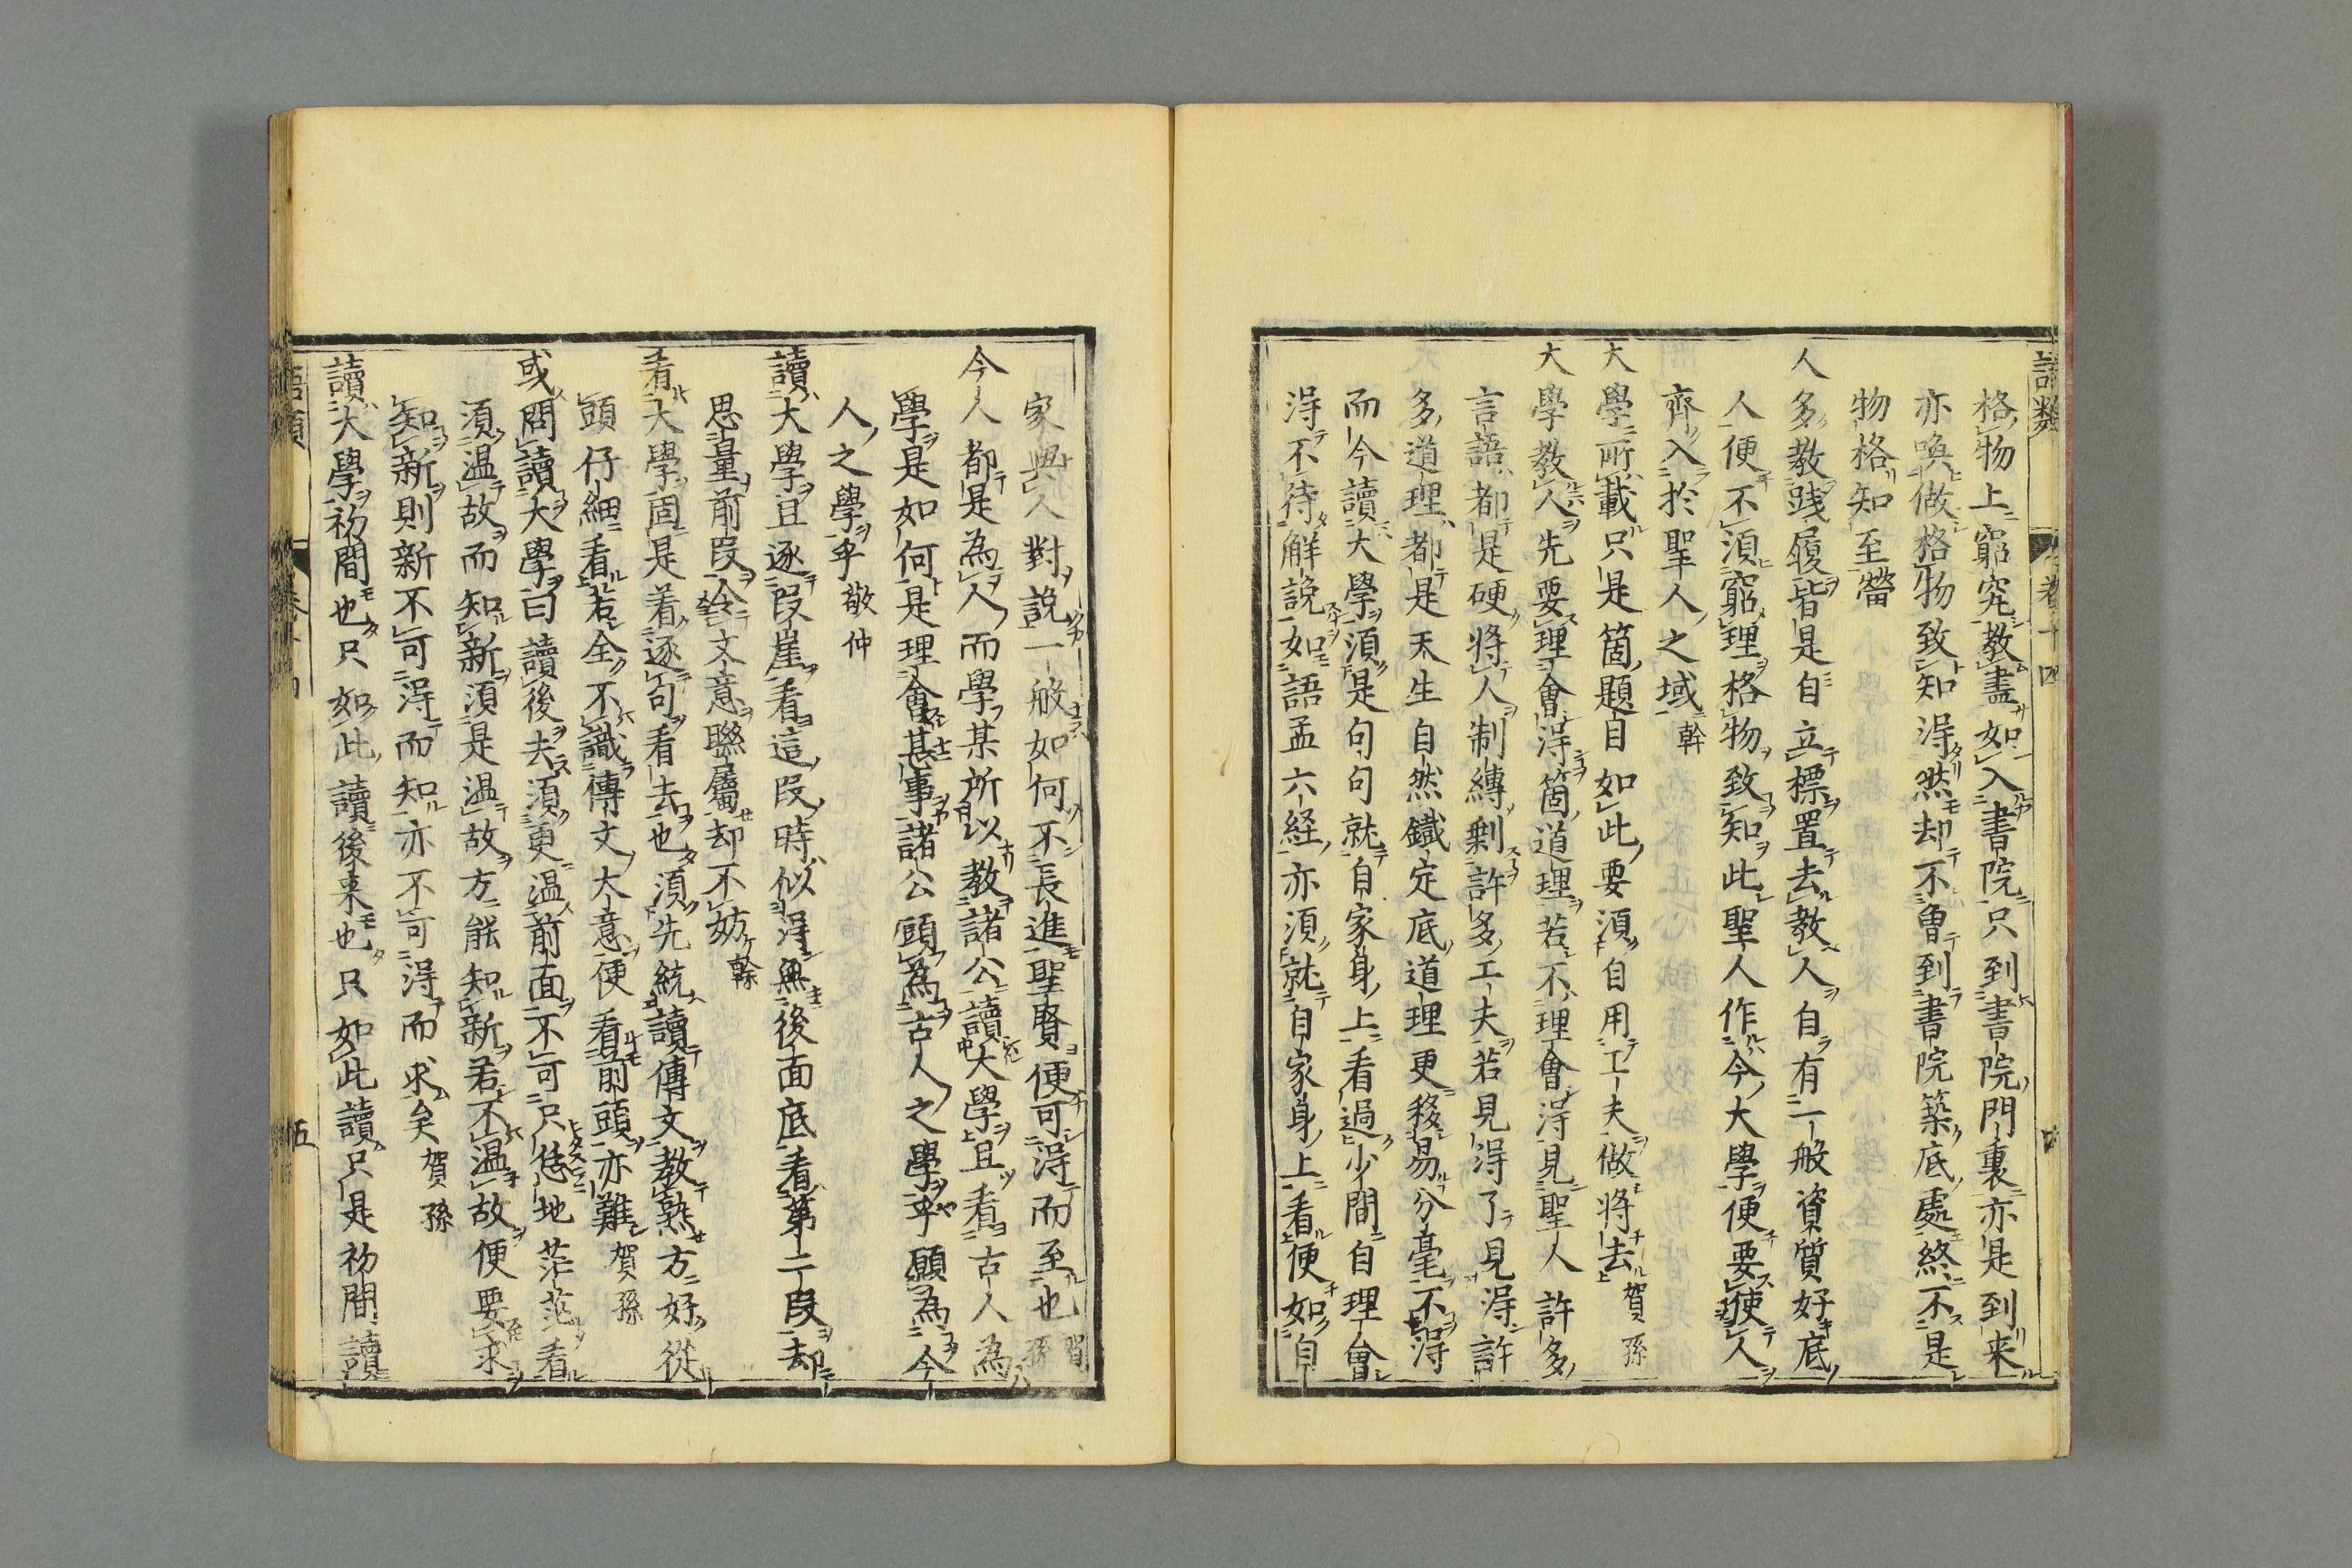 語類 卷十四 四
格物上窮究教盡如入書院只到書院門裏亦是到来
亦喚做格物致知得然却不魯到書院築底處終不是
物格知至㽦
人多教踐履皆是自立標置去教人自有一般資質好底
人便不須窮理格物致知此聖人作今大學便要使人
齊入於聖人之域榦
大學所載只是箇題目如此要須自用工夫做將去賀孫
大學教人先要理會得箇道理若不理會得見聖人許多
言語都是硬將人制縛剩許多工夫若見得了見得許
多道理都是天生自然鐵定底道理更移易分毫不得
而今讀大學須是句句就自家身上看過少間自理會
得不待解説如語孟六経亦須就自家身上看便如自
家與人對説一般如何不長進聖賢便可得而至也賀孫
今人都是為人而學某所以教諸公讀大學且看古人為
學是如何是理會甚事諸公願為古人之學乎願為今
人之學乎敬仲
讀大學且逐段崖看這段時似得無後面底看第二段却
思量前段令文意聯屬却不妨榦
看大學固是着逐句看去也須先統讀傳文教熟方好從
頭仔細看若全不識傳文大意便看前頭亦難賀孫
或問讀大學曰讀後去須更温前面不可只恁地茫茫看
須温故而知新須是温故方能知新若不温故便要求
知新則新不可得而知亦不可得而求矣賀孫
讀大學初間也只如此讀後来也只如此讀只是初間讀
語類 五